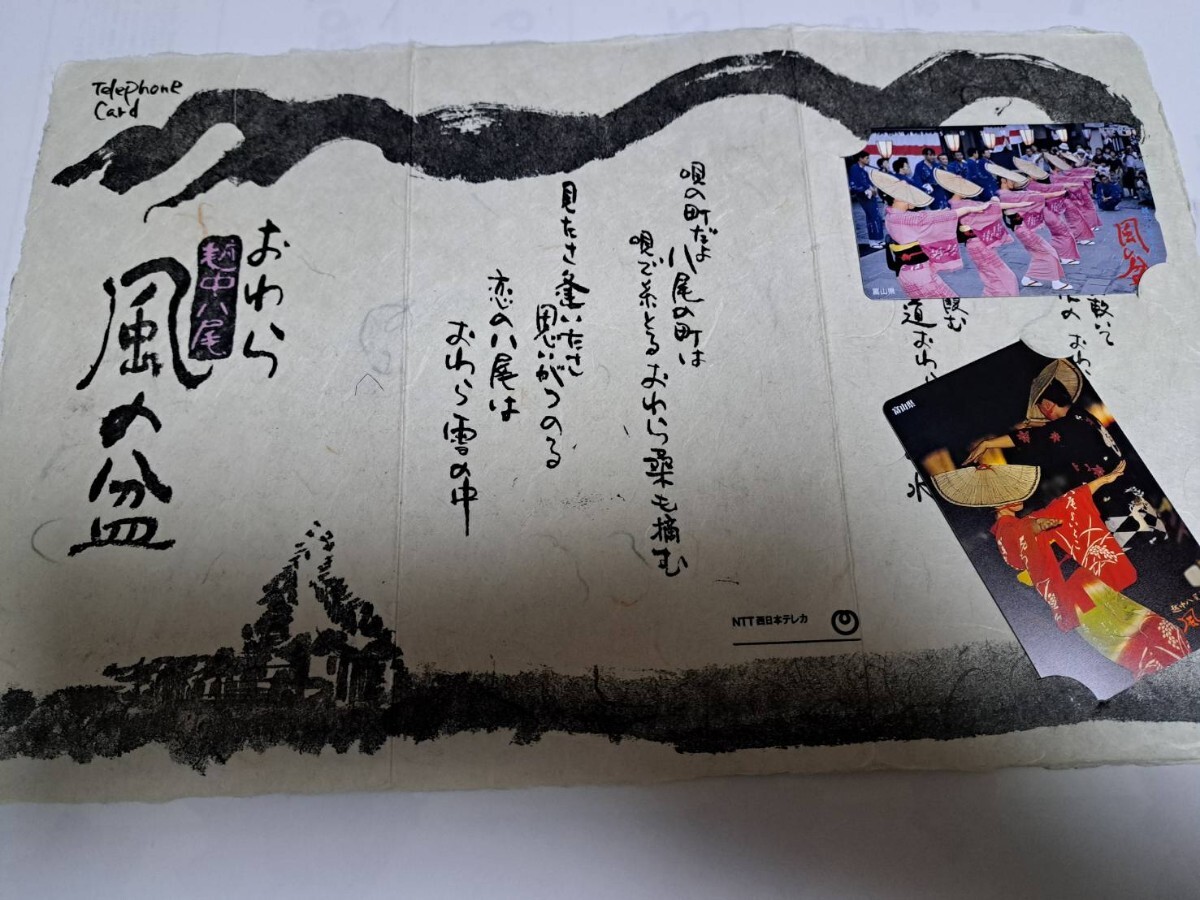 Telephone
Card
おわら
越中八尾
風の盆
唄の町だよ 八尾の町は
唄で糸とるおわら桑も摘む
見たさ逢いたさ
思いがつのる
恋の八尾は
おわら雪の中
NTT西日本テレカ
富山県
風の盆
敷いて
のおわ
道おわ
水
富山県
越中八尾
風